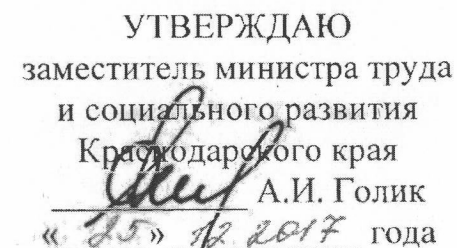 УТВЕРЖДАЮ
заместитель министра труда
и социального развития
Краснодарского края
А.И. Голик
« 25 » 12 2017 года